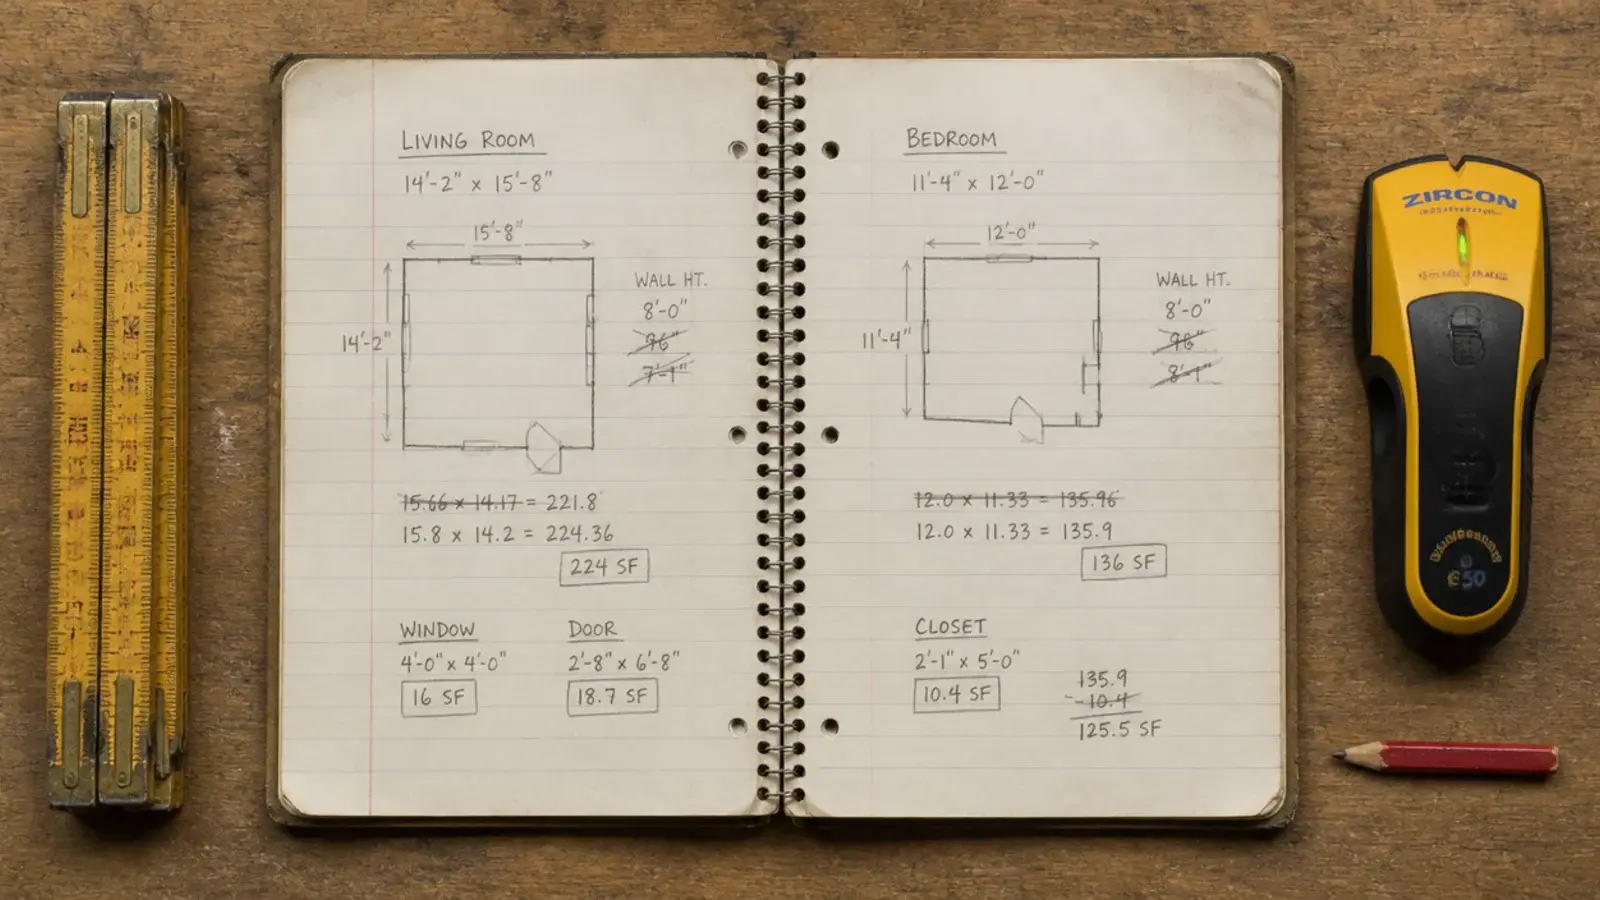 LIVING ROOM
14'-2" x 15'-8"
15'-8"
14'-2"
WALL HT.
8'-0"
96"
7'-1"
15.66 x 14.17 = 221.8
15.8 x 14.2 = 224.36
224 SF
WINDOW
4'-0" x 4'-0"
16 SF
DOOR
2'-8" x 6'-8"
18.7 SF
BEDROOM
11'-4" x 12'-0"
12'-0"
11'-4"
WALL HT.
8'-0"
96"
8'-1"
12.0 x 11.33 = 135.96
12.0 x 11.33 = 135.9
136 SF
CLOSET
2'-1" x 5'-0"
10.4 SF
135.9
- 10.4
125.5 SF
ZIRCON